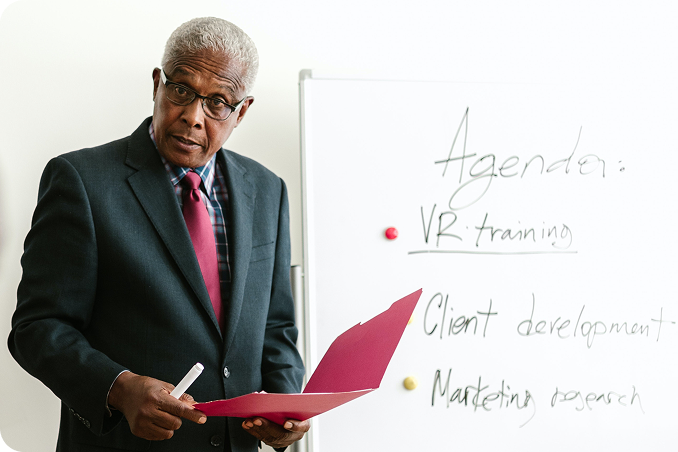 Agenda:
VR training
Client development
Marketing research